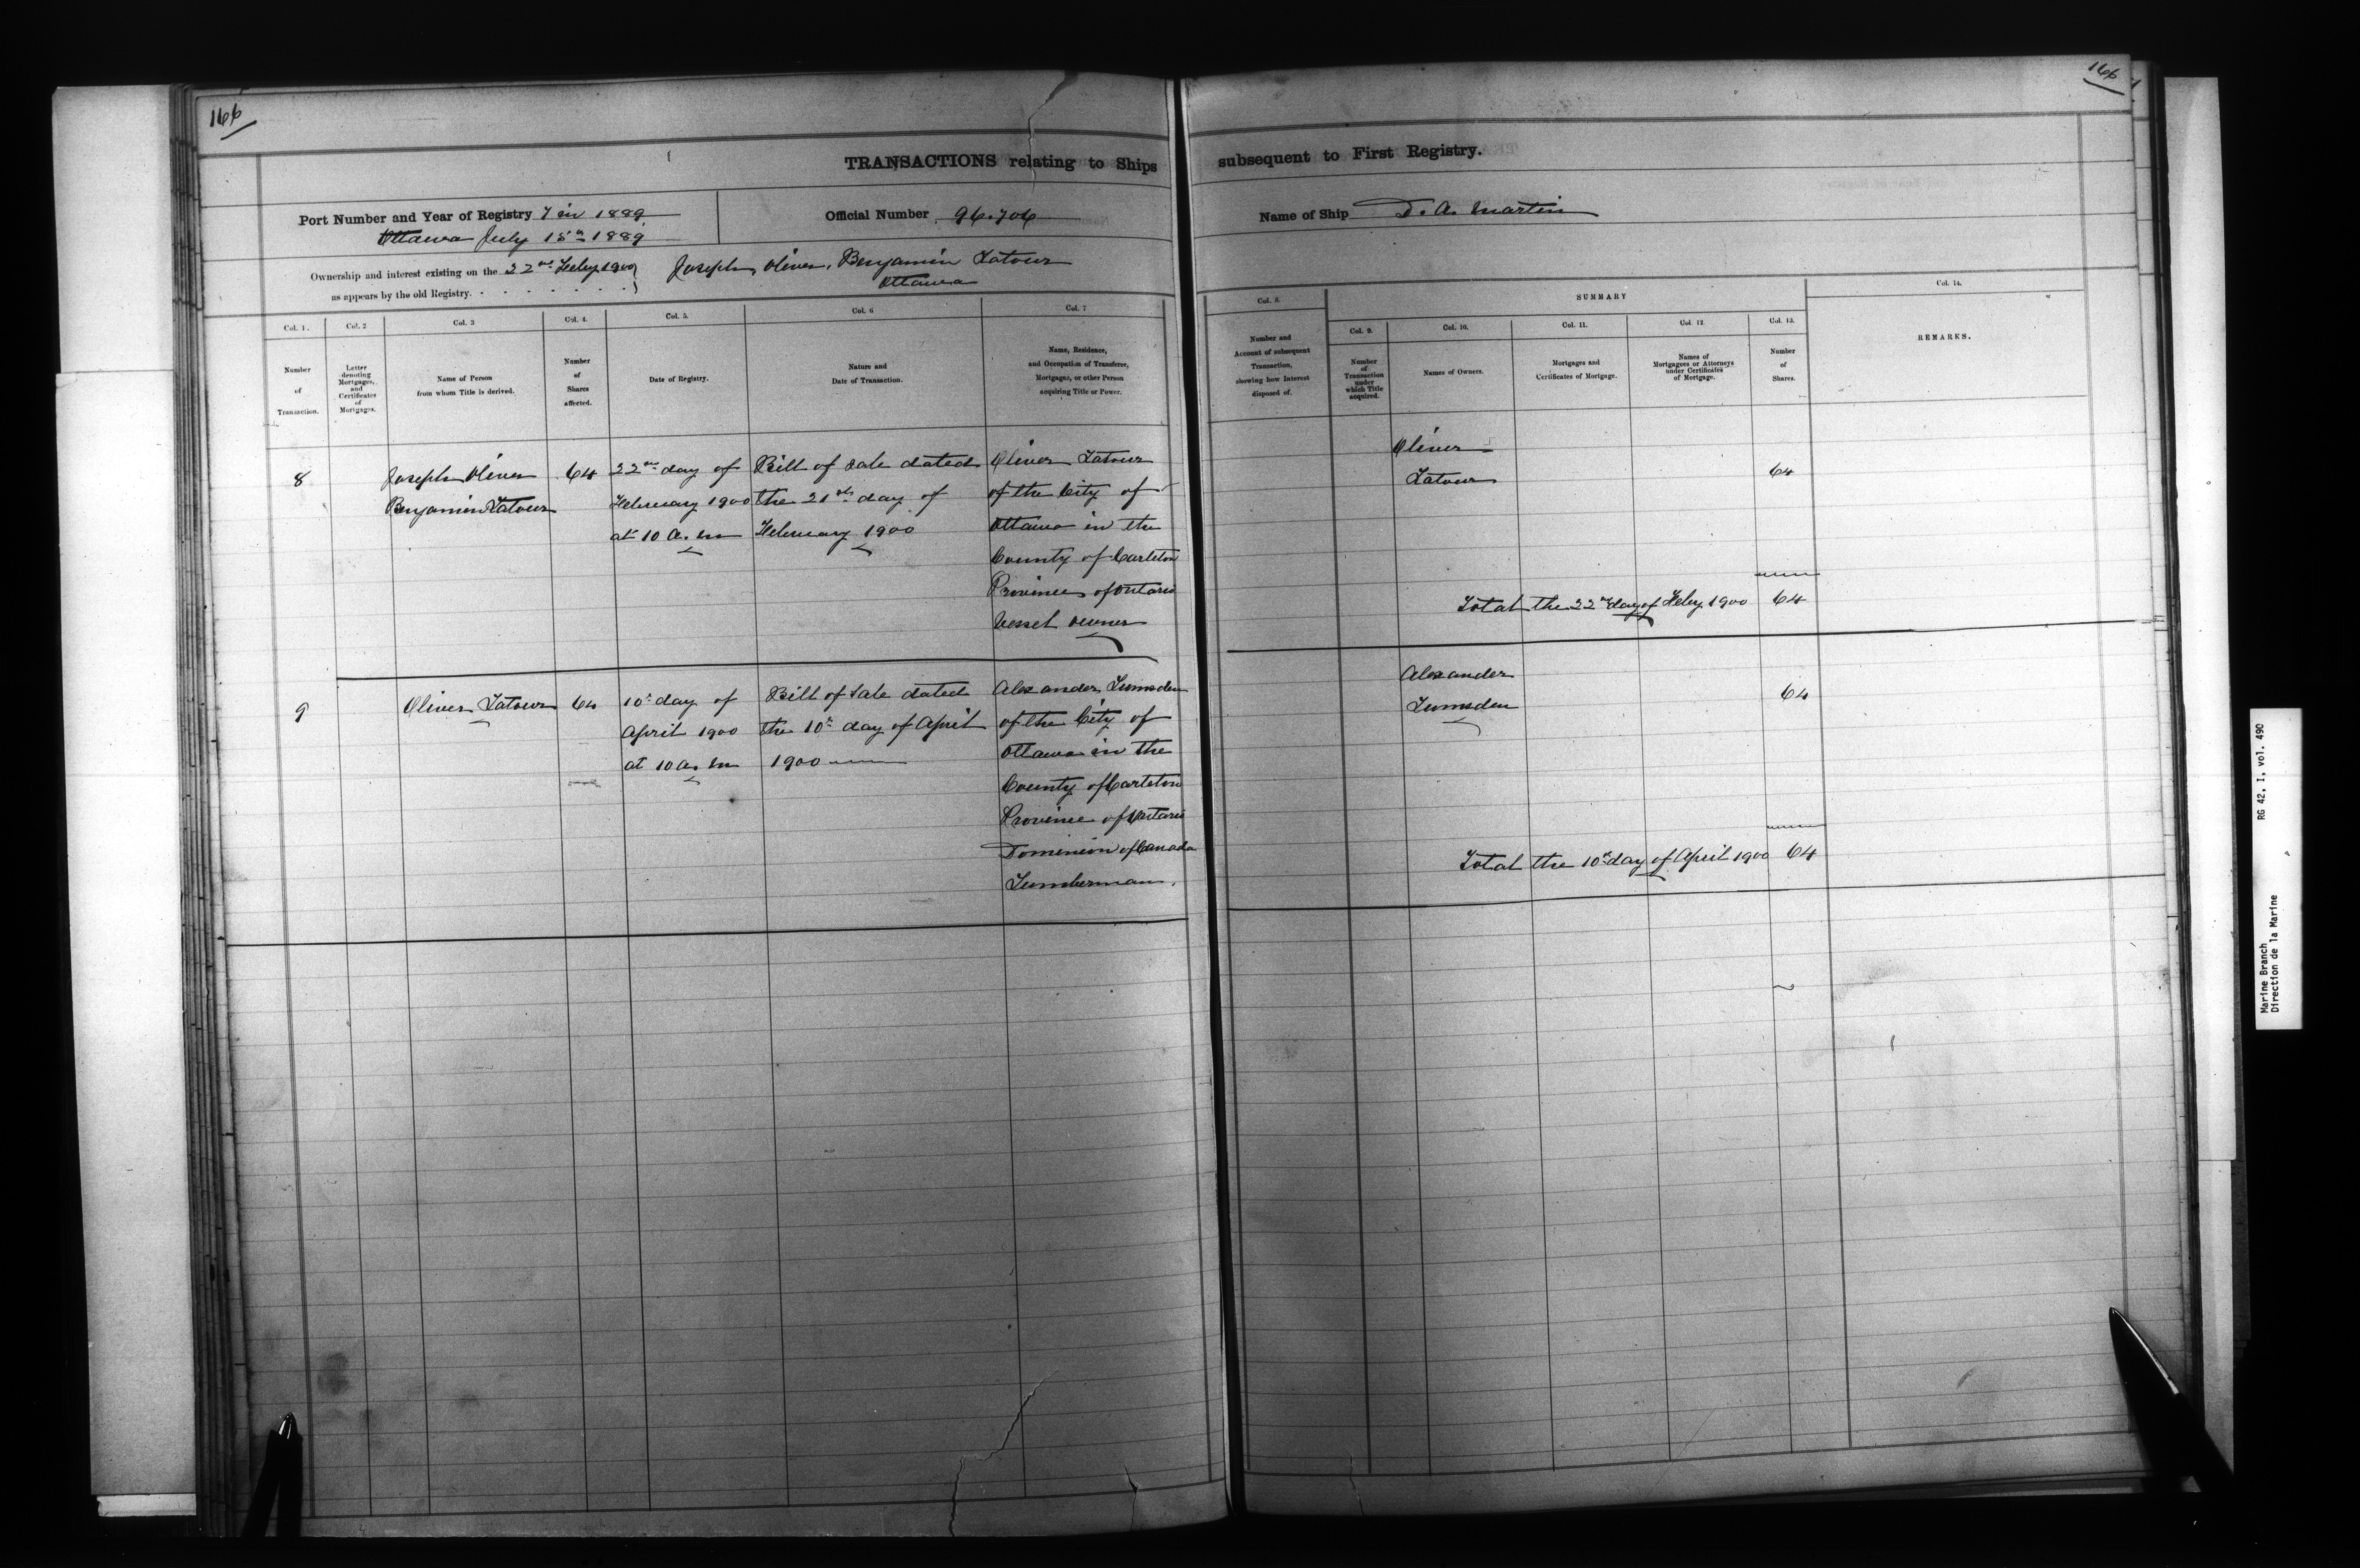 166
166
TRANSACTIONS relating to Ships subsequent to First Registry.
Port Number and Year of Registry 7 in 1889
Ottawa July 15th 1889
Official Number 96.706
Name of Ship D. A. Martin
Ownership and interest existing on the 22nd Feby 1900
as appears by the old Registry.
Joseph, Oliver, Benjamin Latour
Ottawa
SUMMARY
Col. 1.
Number
of
Transaction.
Col. 2
Letter
denoting
Mortgages,
and
Certificates
of
Mortgages.
Col. 3
Name of Person
from whom Title is derived.
Col. 4.
Number
of
Shares
affected.
Col. 5.
Date of Registry.
Col. 6
Nature and
Date of Transaction.
Col. 7
Name, Residence,
and Occupation of Transferee,
Mortgagee, or other Person
acquiring Title or Power.
Col. 8.
Number and
Account of subsequent
Transaction,
showing how Interest
disposed of.
Col. 9.
Number
of
Transaction
under
which Title
acquired.
Col. 10.
Names of Owners.
Col. 11.
Mortgages and
Certificates of Mortgage.
Col. 12.
Names of
Mortgagees or Attorneys
under Certificates
of Mortgage.
Col. 13.
Number
of
Shares.
Col. 14.
REMARKS.
8
Joseph Oliver
Benjamin Latour
64
22nd day of
February 1900
at 10 a. m
Bill of Sale dated
the 21st day of
February 1900
Oliver Latour
of the City of
Ottawa in the
County of Carleton
Province of Ontario
Vessel owner
Oliver
Latour
64
Total the 22nd day of Feby 1900 64
9
Oliver Latour
64
10th day of
April 1900
at 10 a. m
Bill of Sale dated
the 10th day of April
1900
Alexander Lumsden
of the City of
Ottawa in the
County of Carleton
Province of Ontario
Dominion of Canada
Lumberman.
Alexander
Lumsden
64
Total the 10th day of April 1900 64
RG 42, I, vol. 490
Marine Branch
Direction de la Marine